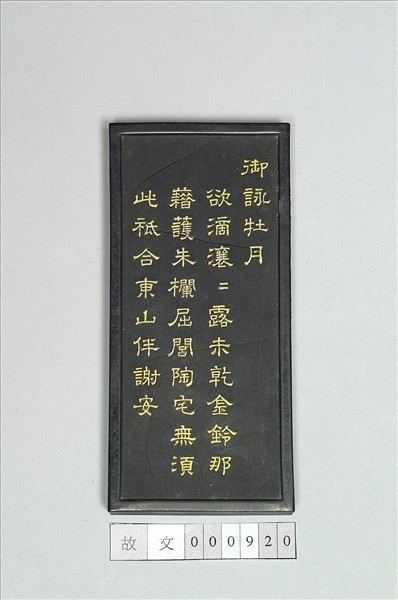 御詠牡丹
欲滴瀼〻露未乾金鈴那
藉護朱欄屈閭陶宅無須
此祗合東山伴謝安
故文000920